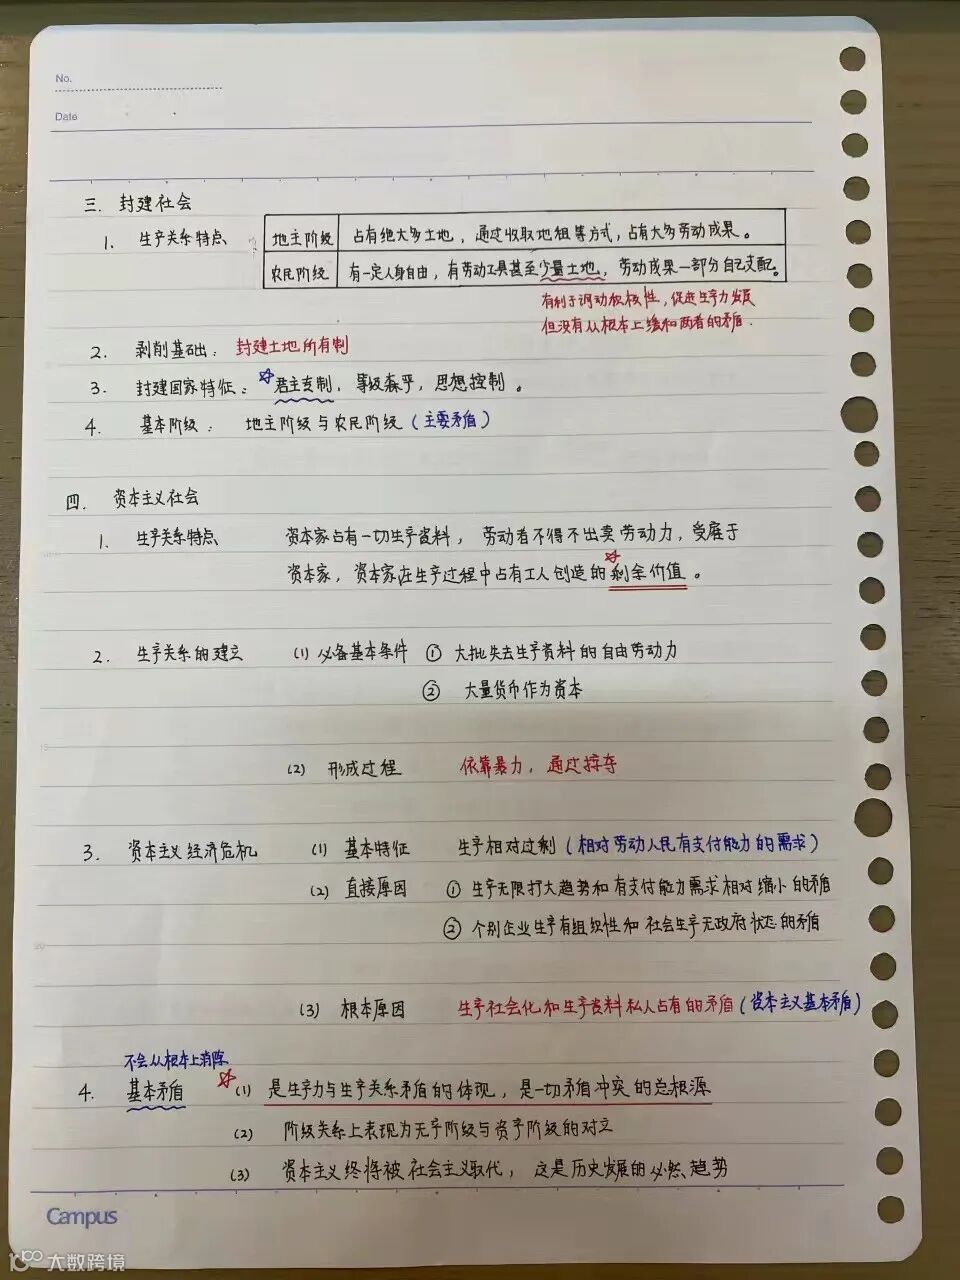 No.
Date
三. 封建社会
1. 生产关系特点
地主阶级 占有绝大多土地，通过收取地租等方式，占有大多劳动成果。
农民阶级 有一定人身自由，有劳动工具甚至少量土地，劳动成果一部分自己支配。
有利于调动积极性，促进生产力发展
但没有从根本上缓和两者的矛盾.
2. 剥削基础： 封建土地所有制
3. 封建国家特征： ☆君主专制，等级森严，思想控制。
4. 基本阶级： 地主阶级与农民阶级（主要矛盾）
四. 资本主义社会
1. 生产关系特点 资本家占有一切生产资料，劳动者不得不出卖劳动力，受雇于
资本家，资本家在生产过程中占有工人创造的☆剩余价值。
2. 生产关系的建立 (1) 必备基本条件 ① 大批失去生产资料的自由劳动力
② 大量货币作为资本
(2) 形成过程 依靠暴力，通过掠夺
3. 资本主义经济危机 (1) 基本特征 生产相对过剩（相对劳动人民有支付能力的需求）
(2) 直接原因 ① 生产无限扩大趋势和有支付能力需求相对缩小的矛盾
② 个别企业生产有组织性和社会生产无政府状态的矛盾
(3) 根本原因 生产社会化和生产资料私人占有的矛盾（资本主义基本矛盾）
不会从根本上消除
4. 基本矛盾 ☆(1) 是生产力与生产关系矛盾的体现，是一切矛盾冲突的总根源
(2) 阶级关系上表现为无产阶级与资产阶级的对立
(3) 资本主义终将被社会主义取代，这是历史发展的必然趋势
Campus
大数跨境